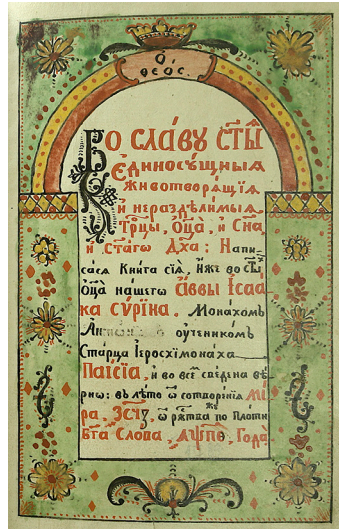 Ѻ҆
ѲЕОС.
Во славу ст҃ыѧ
Єдиносущныѧ
Животворѧщїѧ
и нераздѣлимыѧ
Трⷪ҇цы, Ѻц҃а, и Сн҃а,
и Ст҃агѡ Дх҃а: Напи
сасѧ Книга сїѧ, иже во ст҃ыⷯ
Ѻц҃а нашегѡ Аввы Ісаа
ка Сѵрїна. Монахомъ
оученикомъ
Старца Іеросхїмонаха
Паисїа, и во всеⷨ сведена вѣ
рнѡ: в лѣто ѿ сотворенїѧ Мі
ра. ѿ рⷤ҇тва же по Плоти
Бг҃а Слова, Года